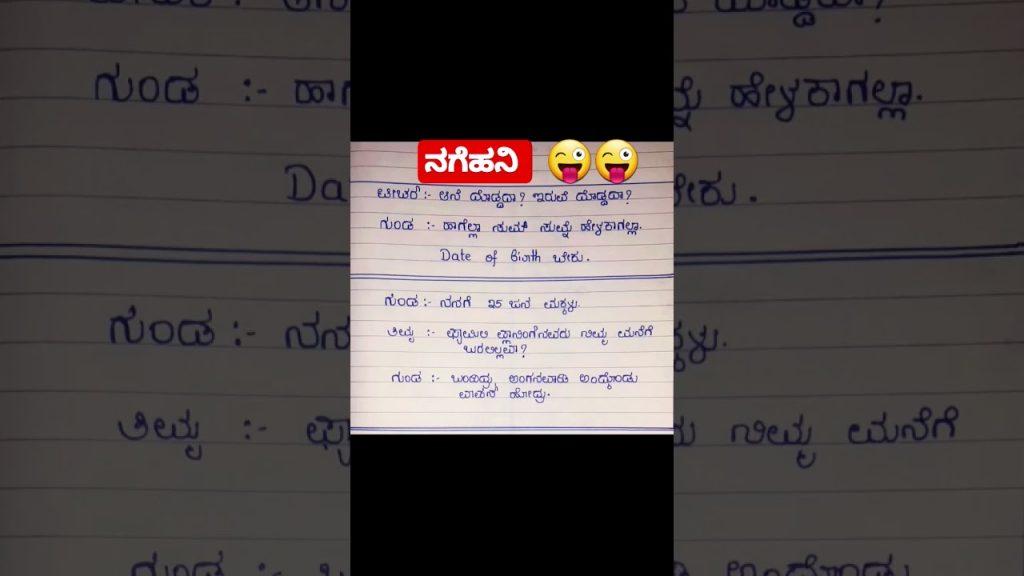 ನಗೆಹನಿ
ಟೀಚರ್ :- ಆನೆ ದೊಡ್ಡದಾ? ಇರುವೆ ದೊಡ್ಡದಾ?
ಗುಂಡ :- ಹಾಗೆಲ್ಲಾ ಸುಮ್ ಸುಮ್ನೆ ಹೇಳಕಾಗಲ್ಲಾ.
Date of birth ಬೇಕು.
ಗುಂಡ :- ನನಗೆ 25 ಜನ ಮಕ್ಕಳು.
ತಿಮ್ಮ :- ಫ್ಯಾಮಿಲಿ ಪ್ಲಾನಿಂಗ್‌ನವರು ನಿಮ್ಮ ಮನೆಗೆ
ಬರಲಿಲ್ಲವಾ?
ಗುಂಡ :- ಬಂದಿದ್ರು ಅಂಗನವಾಡಿ ಅಂದ್ಕೊಂಡು
ವಾಪಸ್ ಹೋದ್ರು.